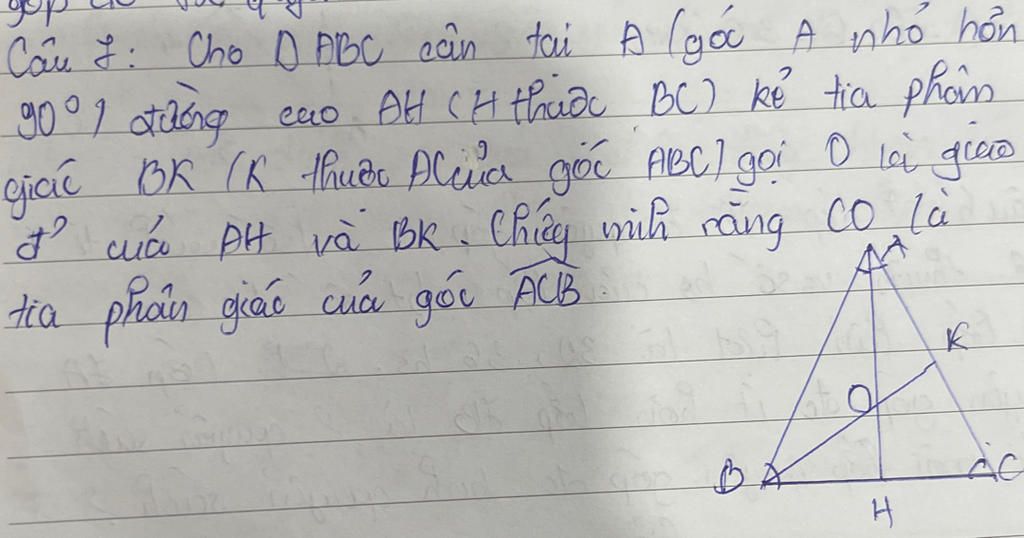 Câu 7: Cho Δ ABC cân tại A (góc A nhỏ hơn
90°) đường cao AH (H thuộc BC) kẻ tia phân
giác BK (K thuộc AC của góc ABC) gọi O là giao
đ² của AH và BK. Chứng minh rằng CO là
tia phân giác của góc ACB.
A
K
O
B
C
H